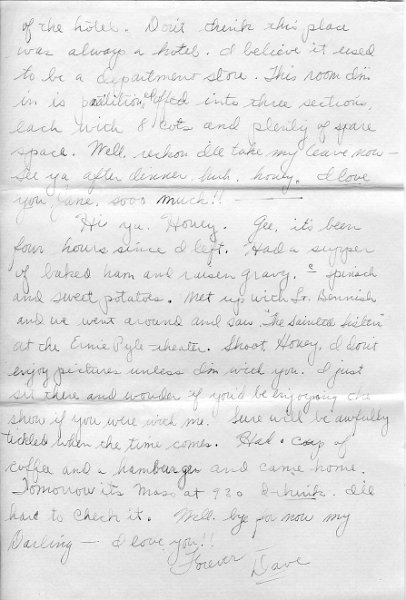 of the hotel. Don't think this place
was always a hotel. I believe it used
to be a department store. This room I'm
in is partitioned off into three sections,
each with 8 cots and plenty of spare
space. Well, reckon I'll take my leave now —
See ya after dinner, huh, honey. I love
you Jane, sooo much!! —
"Hi ya, Honey. Gee, it's been
four hours since I left. Had a supper
of baked ham and raisen gravy, c̄ spinach
and sweet potatoes. Met up with Lt. Bennish
and we went around and saw "The Sainted Sisters"
at the Ernie Pyle theater. Shoot Honey, I don't
enjoy pictures unless I'm with you. I just
sit there and wonder if you'd be enjoying the
show if you were with me. Sure will be awfully
tickled when the time comes. Had a cup of
coffee and a hamburger and came home.
Tomorrow its Mass at 930 I think. I'll
have to check it. Well bye for now my
Darling — I love you!!
Forever
Dave